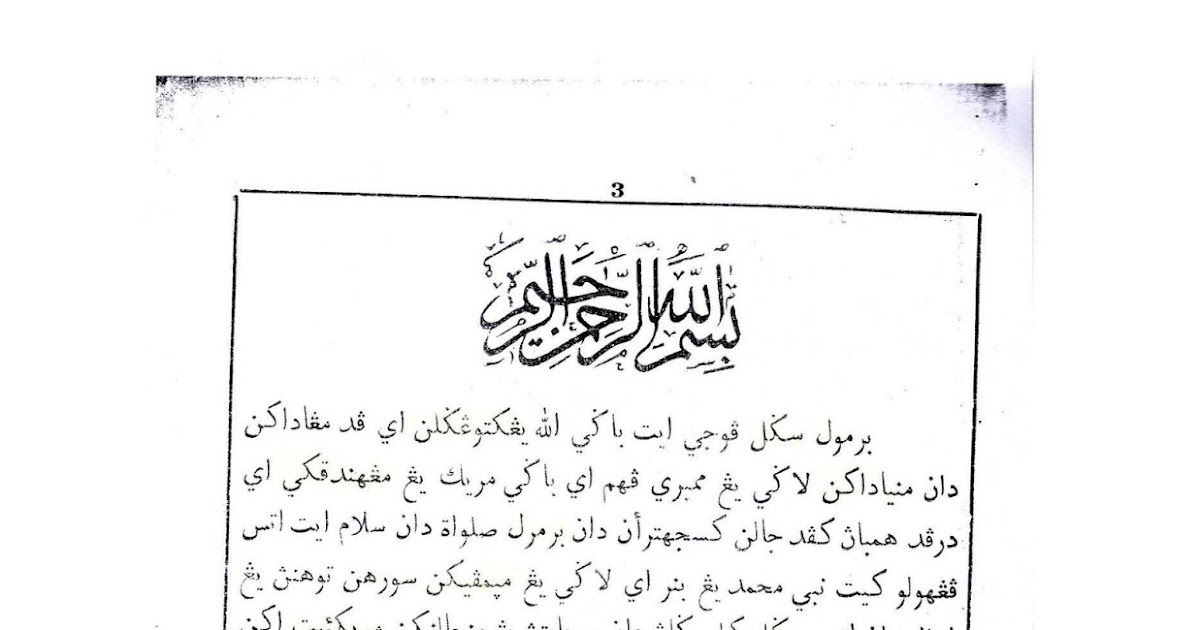 3
بسم الله الرحمن الرحيم
برمول سݢل ڤوجي ايت باݢي الله يڠكتوڠݢلن اي ڤد مڠاداكن
دان منياداكن لاݢي يڠ ممبري ڤهم اي باݢي مريك يڠ مڠهندقكي اي
درڤد همباڽ كڤد جالن كسجهترأن دان برمول صلواة دان سلام ايت اتس
ڤڠهولو كيت نبي محمد يڠ بنر اي لاݢي يڠ مڽمڤيكن سورهن توهنڽ يڠ